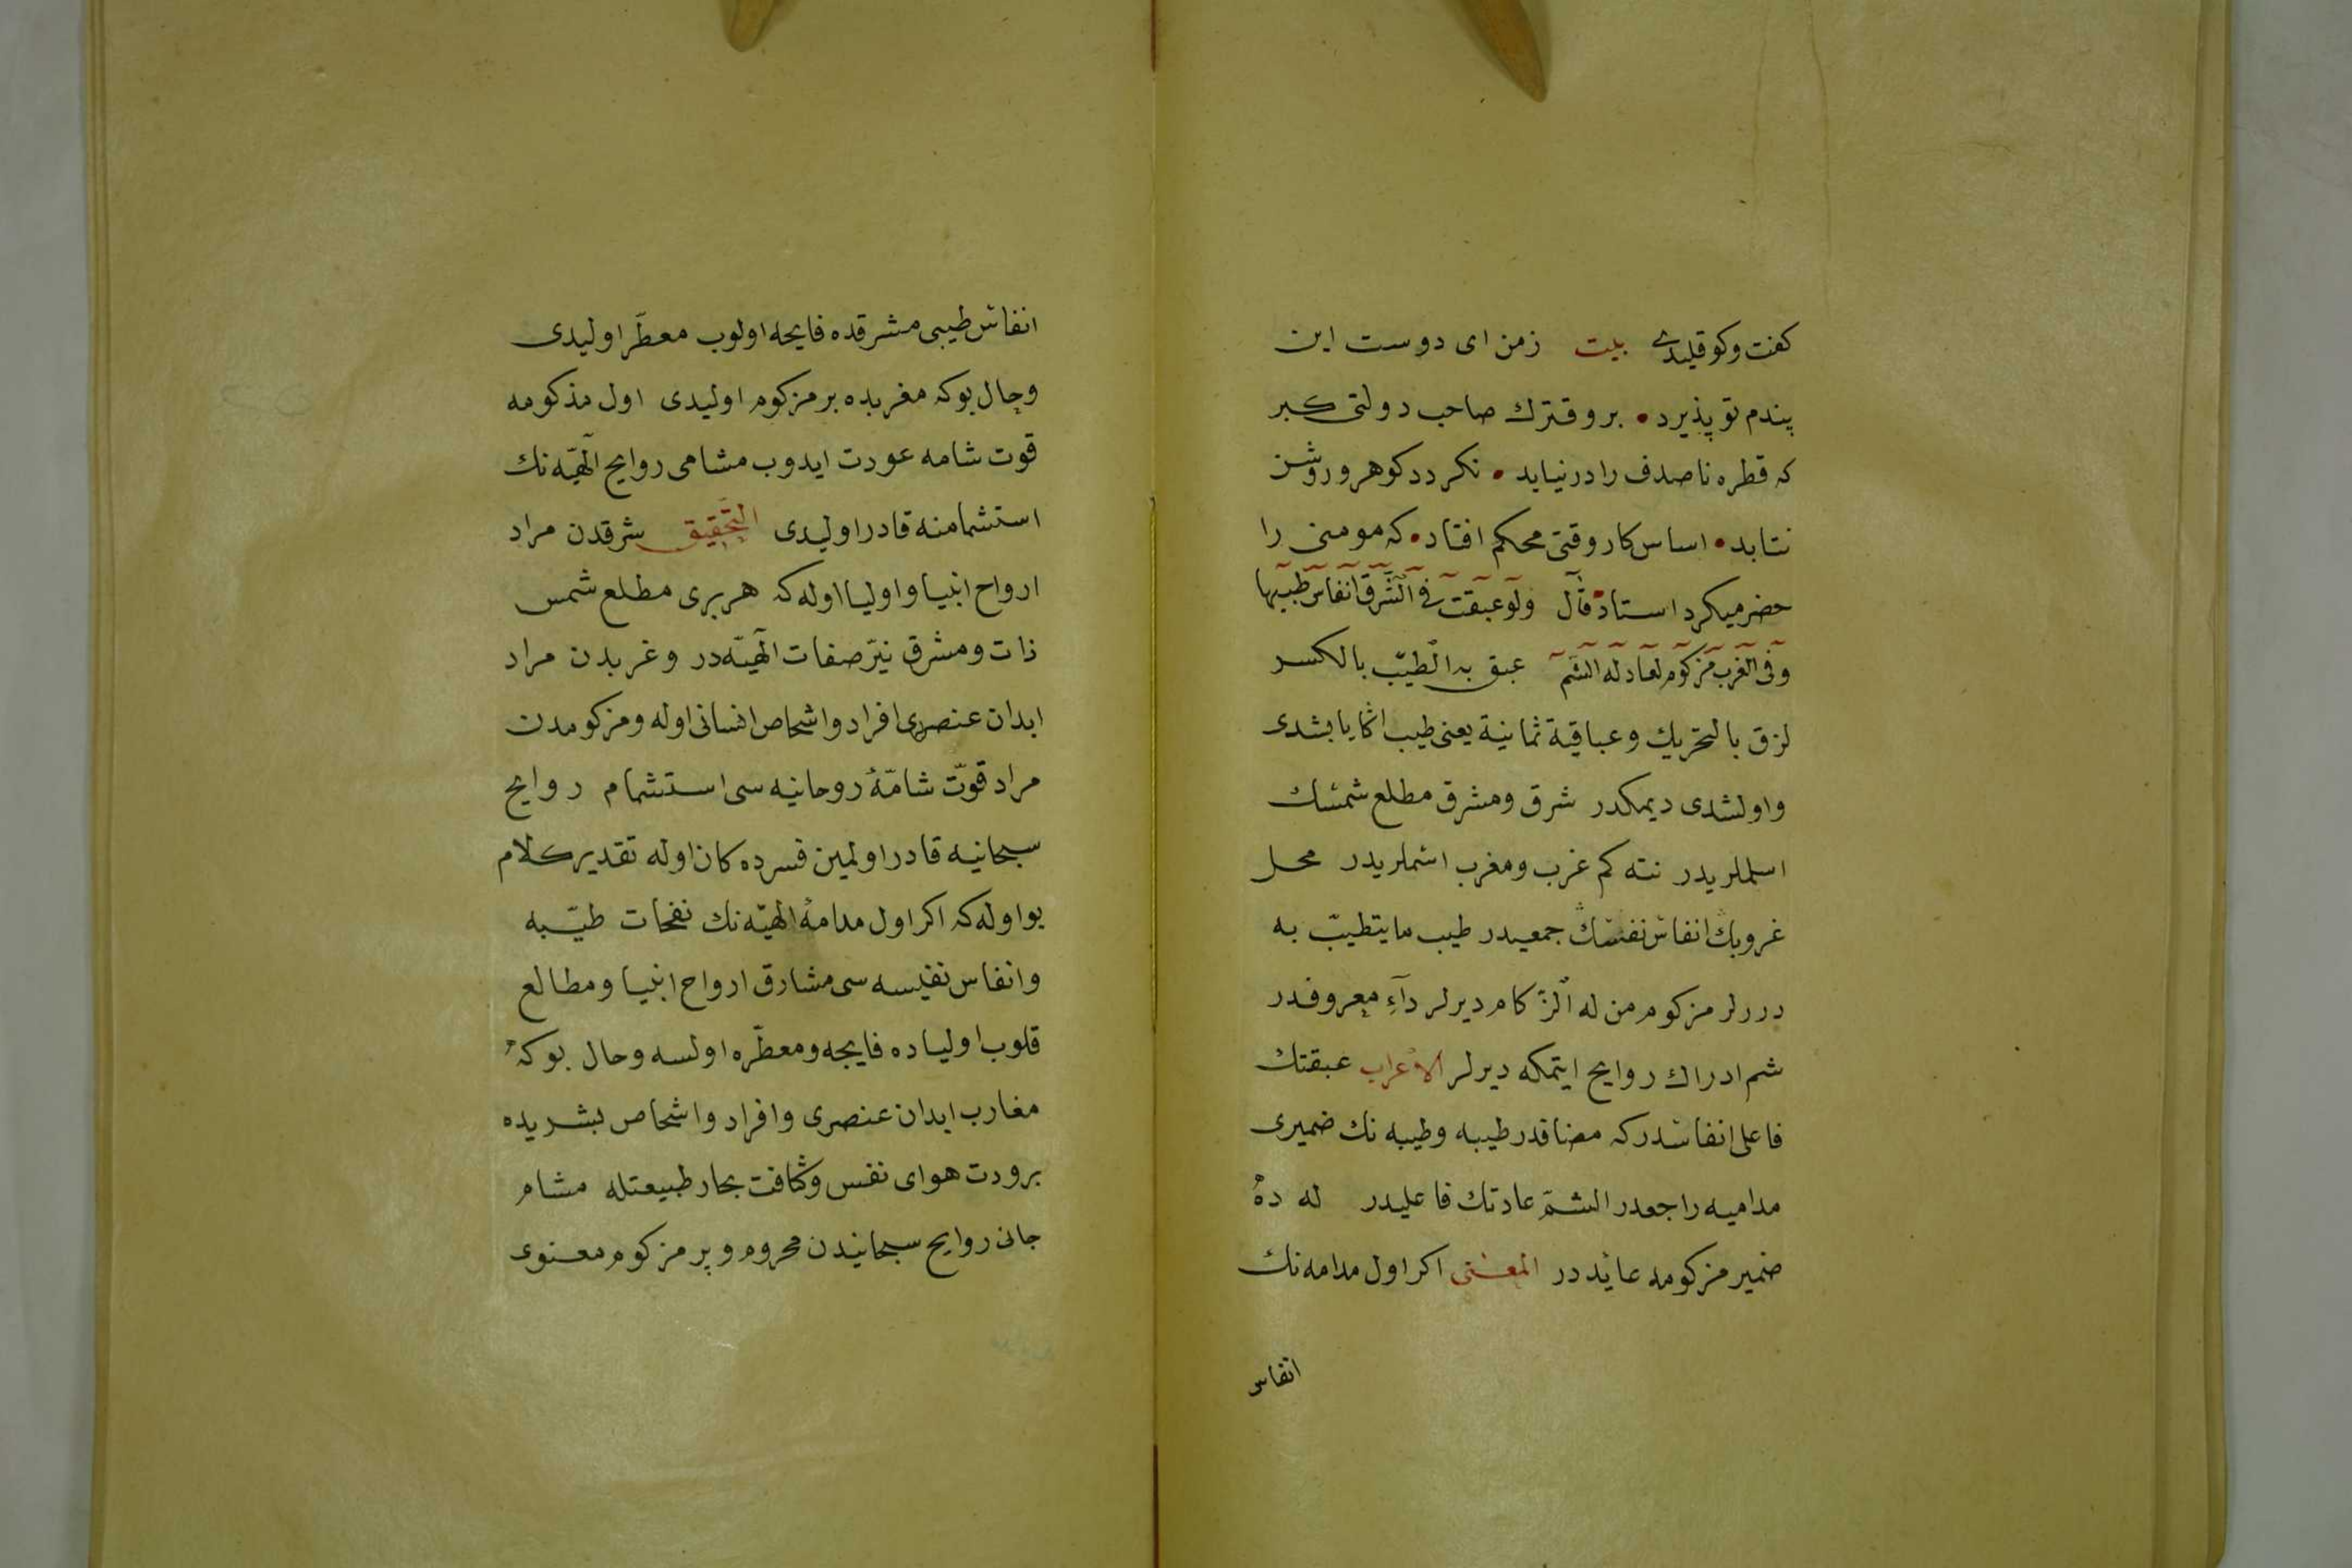 كفت وكو قليدى بيت زمن اى دوست اين
پندم تو پذيرد • برو فترك صاحب دولتى كبر
كه قطره نا صدف را در نيابد • نكردد كوهر و روشن
نتابد • اساس كار وقتى محكم افتاد • كه مومنى را
حضر ميكرد استاد • قال ولو عبقت فى الشرق انفاس طيبها
وفى الغرب مزكوم لعاد له الشم عبق به الطيب بالكسر
لزق بالتحريك وعباقية ثمانية يعنى طيب اكا يابشدى
واولشدى ديمكدر شرق ومشرق مطلع شمسك
اسملريدر نته كم غرب ومغرب اسملريدر محل
غروبك انفاس نفسك جمعيدر طيب ما يتطيب به
درلر مزكوم من له الزكام ديرلر داء معروفدر
شم ادراك روايح ايتمكه ديرلر الاعراب عبقتك
فاعلى انفاسدركه مضافدر طيبه وطيبه نك ضميرى
مداميه راجعدر الشم عادتك فاعليدر له ده
ضمير مزكومه عايددر المعنى اكر اول مدامه نك
انفاس
انفاس طيبى مشرقده فايحه اولوب معطر اوليدى
وحال بوكه مغربده بر مزكوم اوليدى اول مذكومه
قوت شامه عودت ايدوب مشامى روايح الهيه نك
استشمامنه قادر اوليدى التحقيق شرقدن مراد
ارواح انبيا واوليا اوله كه هر برى مطلع شمس
ذات ومشرق نير صفات الهيه در وغربدن مراد
ابدان عنصرى افراد واشخاص انسانى اوله ومزكومدن
مراد قوت شامه روحانيه سى استشمام روايح
سبحانيه قادر اولمين فسرده كان اوله تقدير كلام
بو اوله كه اكر اول مدامه الهيه نك نفحات طيبه
وانفاس نفيسه سى مشارق ارواح انبيا ومطالع
قلوب اولياده فايحه ومعطره اولسه وحال بوكه
مغارب ابدان عنصرى وافراد واشخاص بشريده
برودت هواى نفس وكثافت بخار طبيعتله مشام
جانى روايح سبحانيدن محروم وبر مزكوم معنوى